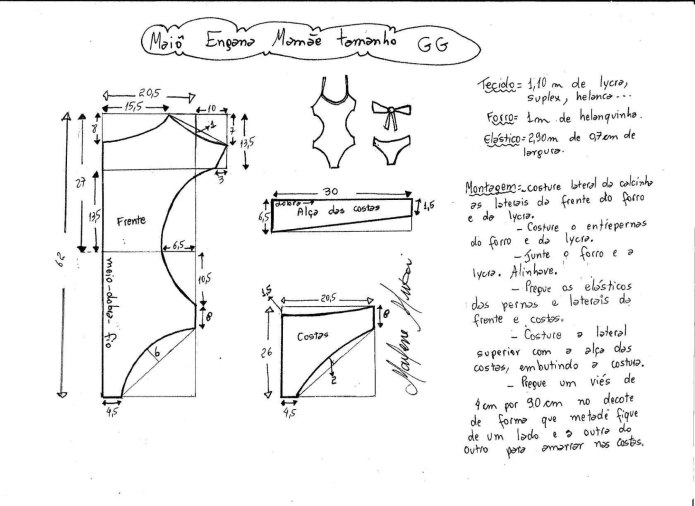 Maiô Engana Mamãe tamanho GG
20,5
15,5
10
8
1
7
13,5
3
27
13,5
62
Frente
6,5
10,5
8
meio-dobra-fio
6
4,5
30
dobra
Alça das costas
6,5
4,5
1,5
20,5
8
Costas
26
2
4,5
Marlene Mukai
Tecido= 1,10 m de lycra,
suplex, helanca...
Forro= 1m de helanquinha.
Elástico= 2,90m de 0,7cm de
largura.
Montagem=-costure lateral da calcinha
as laterais da frente do forro
e da lycra.
- Costure o entrepernas
do forro e da lycra.
- Junte o forro e a
lycra. Alinhave.
- Pregue os elásticos
das pernas e laterais da
frente e costas.
- Costure a lateral
superior com a alça das
costas, embutindo a costura.
- Pregue um viés de
4cm por 90cm no decote
de forma que metade fique
de um lado e a outra do
outro para amarrar nas costas.